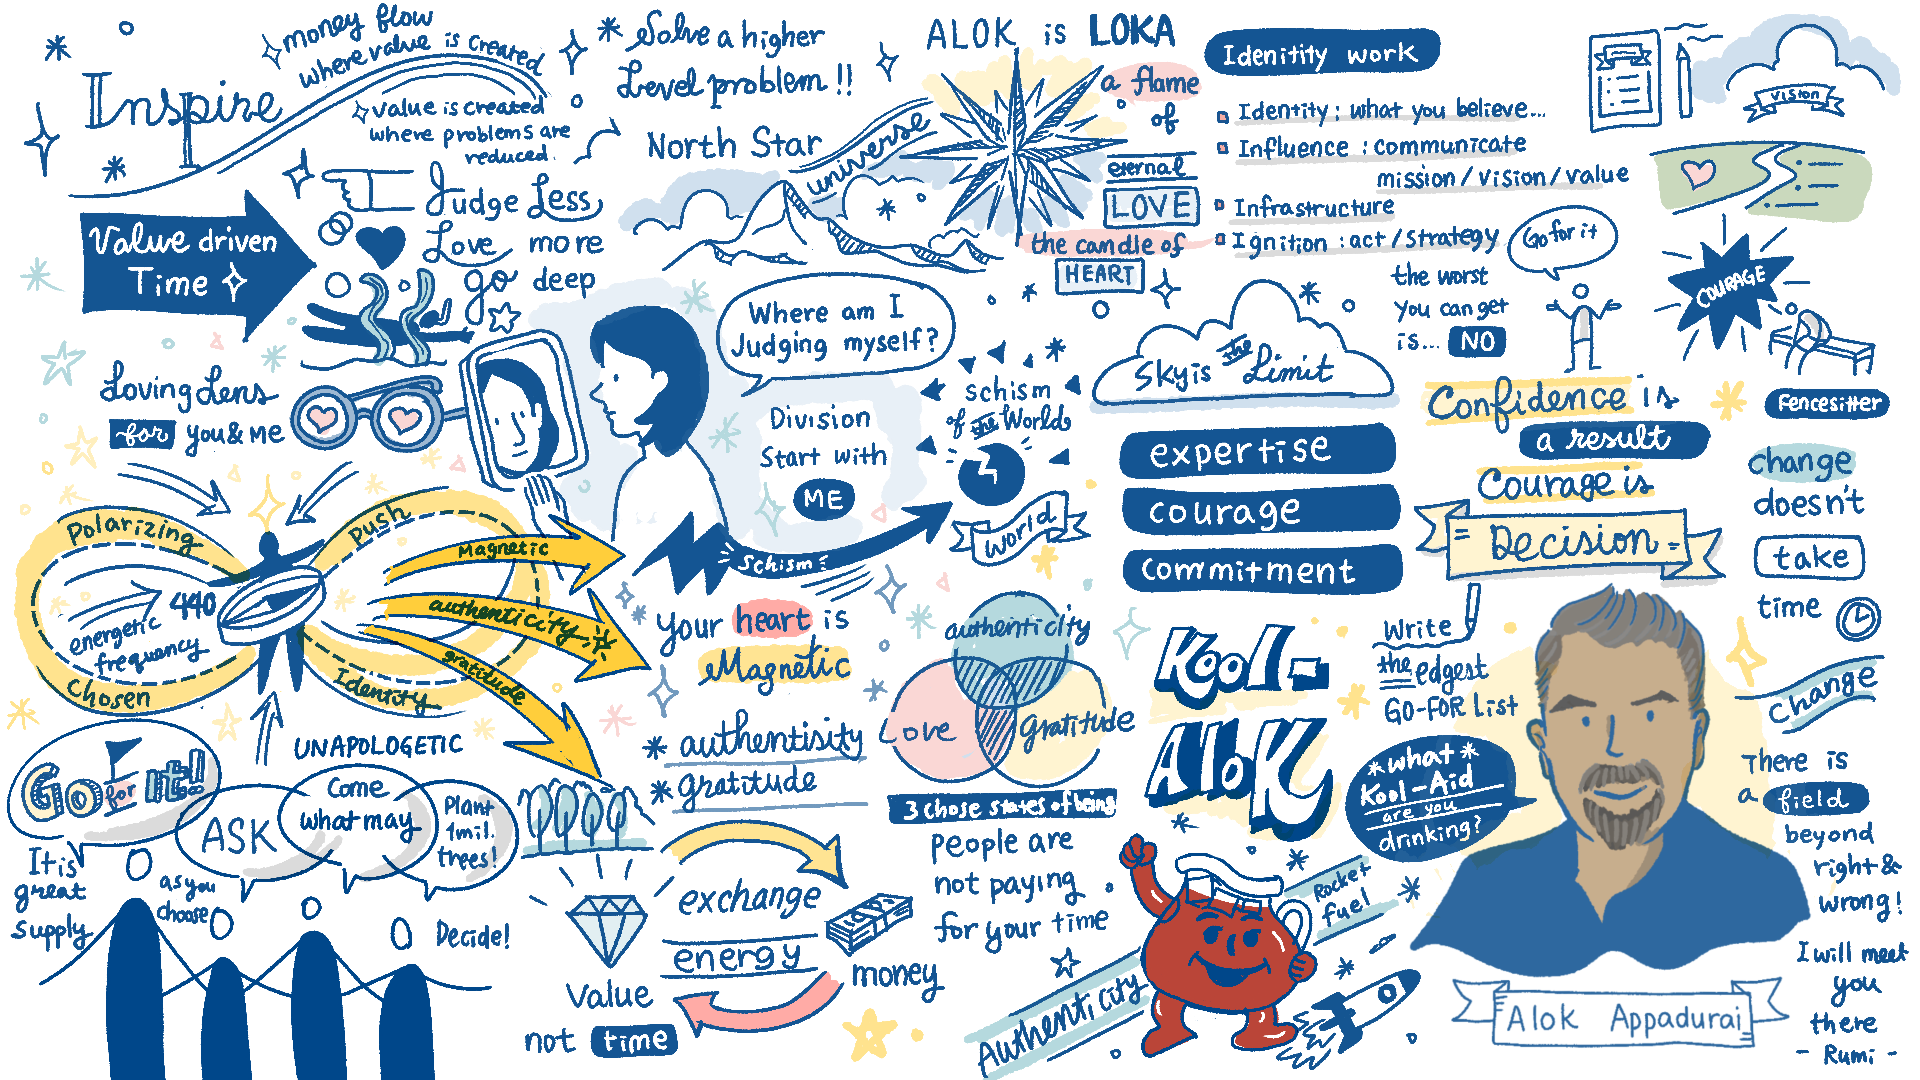 Inspire
money flow
where value is created
value is created
where problems are
reduced.
* Solve a higher
Level problem !!
North Star
universe
ALOK is LOKA
a flame
of
eternal
LOVE
the candle of
HEART
Idenitity work
Identity : what you believe...
Influence : communicate
mission / vision / value
Infrastructure
Ignition : act / strategy
vision
Value driven
Time
Judge Less
Love more
go deep
Loving Lens
for you & me
Where am I
Judging myself?
Division
Start with
ME
schism
of the World
World
Schism
Sky is the Limit
expertise
courage
commitment
Go for it
the worst
you can get
is... NO
COURAGE
Fencesitter
Confidence is
a result
Courage is
= Decision =
change
doesn't
take
time
change
Polarizing
Push
440
energetic
frequency
chosen
Identity
Magnetic
authenticity
gratitude
UNAPOLOGETIC
Your heart is
Magnetic
* authentisity
* gratitude
authenticity
Love
gratitude
3 chose states of being
People are
not paying
for your time
Kool-
AloK
Write
the edgest
GO-FOR list
*what*
Kool-Aid
are you
drinking?
There is
a field
beyond
right &
wrong!
I will meet
you
there
- Rumi -
Go for it!!
ASK
Come
what may
Plant
1mil.
trees!
It is
great
supply
as you
choose
Decide!
exchange
energy
money
Value
not time
Authenticity
Rocket
fuel
Alok Appadurai